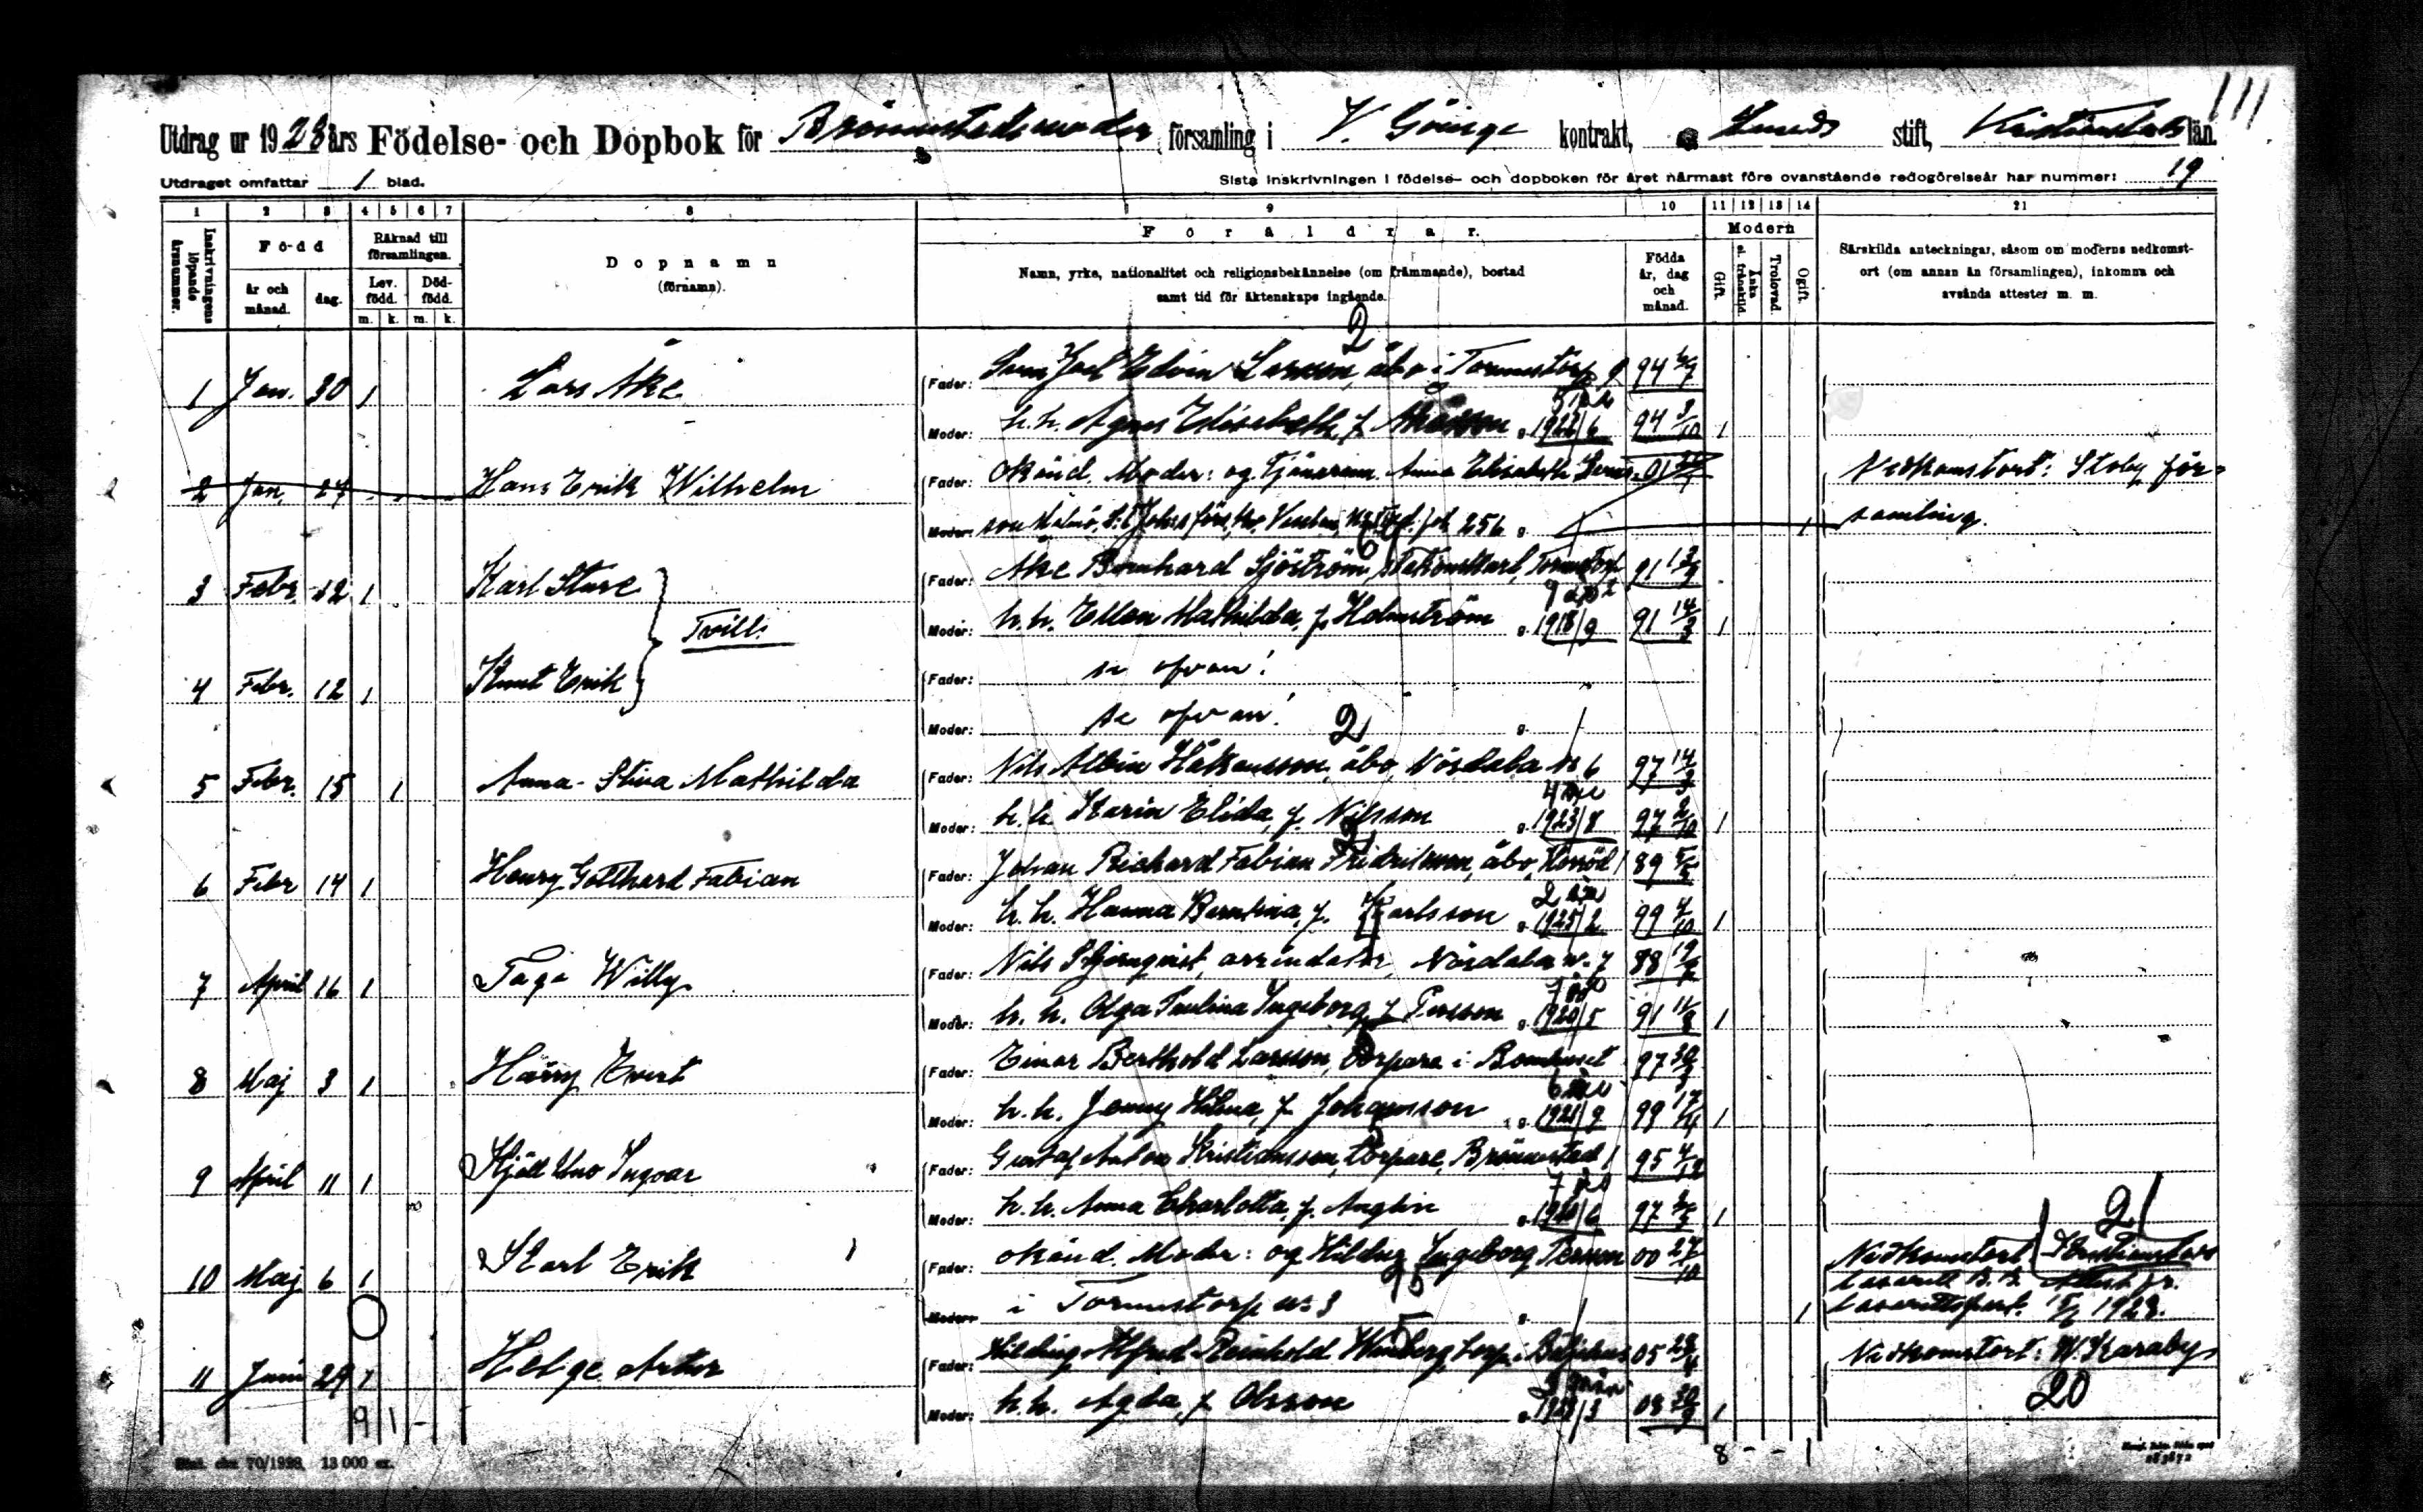 111
Utdrag ur 1928 års Födelse- och Dopbok för Brönnestads moder församling i V. Göinge kontrakt, Lunds stift, Kristianstads län.
Utdraget omfattar 1 blad. Sista inskrivningen i födelse- och dopboken för året närmast före ovanstående redogörelseår har nummer: 19
1 2 3 4 5 6 7 8 9 10 11 12 13 14 21
Inskrivningens löpande årsnummer.
Född
år och månad.
dag.
Räknad till församlingen.
Lev. född.
Död-född.
m. k. m. k.
Dopnamn
(förnamn).
Föräldrar.
Namn, yrke, nationalitet och religionsbekännelse (om främmande), bostad
samt tid för äktenskaps ingående.
Födda år, dag och månad.
Modern
Gift.
Änka el. frånskild.
Trolovad.
Ogift.
Särskilda anteckningar, såsom om moderns nedkomst-
ort (om annan än församlingen), inkomna och
avsända attester m. m.
2
1 Jan. 30 1 Lars Åke Fader: Joel Edvin Larsson, åbo i Tormestorp 9 94
Moder: h. h. Agnes Elisabeth, f. Åkesson g. 1922/6 94 1
2 Jan. 27 Hans Erik Wilhelm Fader: okänd. Moder: og. Tjänarinn. Anna Elisabeth 01 Nedkomstort: Stoby för-
Moder: son Malmö, S:t Joh:s förs. 256 g. 1 samling.
3 Febr. 12 1 Karl Sture Fader: Åke Bernhard Sjöström, stationskarl, Tormestorp 91 13/9
Tvill.
Moder: h. h. Ellen Mathilda, f. Holmström g. 1918/9 91 14/3 1
4 Febr. 12 1 Knut Erik Fader: se ofvan!
Moder: se ofvan! g. /
2
5 Febr. 15 1 Anna-Stina Mathilda Fader: Nils Albin Håkansson, åbo, Nösdala no 6 97 14/3
Moder: h. h. Karin Elida, f. Nilsson g. 1923/8 97 2/10 1
6 Febr 14 1 Henry Gotthard Fabian Fader: Johan Richard Fabian Fridriksson, åbo, 89
Moder: h. h. Hanna Berntina, f. Karlsson g. 1925/2 99 4/10 1
7 April 16 1 Tage Willy Fader: Nils Stjernqvist, arrendator, Nösdala n. 7 88
Moder: h. h. Olga Paulina Ingeborg, f. Persson g. 1920/5 91 11/8 1
8 Maj 3 1 Harry Evert Fader: Einar Berthold Larsson, torpare i Bomhuset 97
Moder: h. h. Jenny Hilma, f. Johansson g. 1921/9 99 17/4 1
9 April 11 1 Kjell Uno Ingvar Fader: Gustaf Anton Kristiansson, torpare, Brönnestad 1 95 4/12
Moder: h. h. Anna Charlotta, f. Anglin g. 1920/6 97 1
21
10 Maj 6 1 Karl Erik Fader: okänd. Moder: og Hildur Ingeborg Persson 00 27/10 Nedkomstort Kristianstads
lasarett B. B. Attest fr.
Moder: i Tormestorp n:o 3 g. / 1 lasarettspast. 1928.
11 Juni 29 1 Helge Artur Fader: Hilding Alfred Reinhold Winberg, 05 Nedkomstort: W. Karaby
20
Moder: h. h. Agda, f. Olsson g. 1928/3 08 1
9 1 - 8 - - 1
70/1928. 13 000 ex.